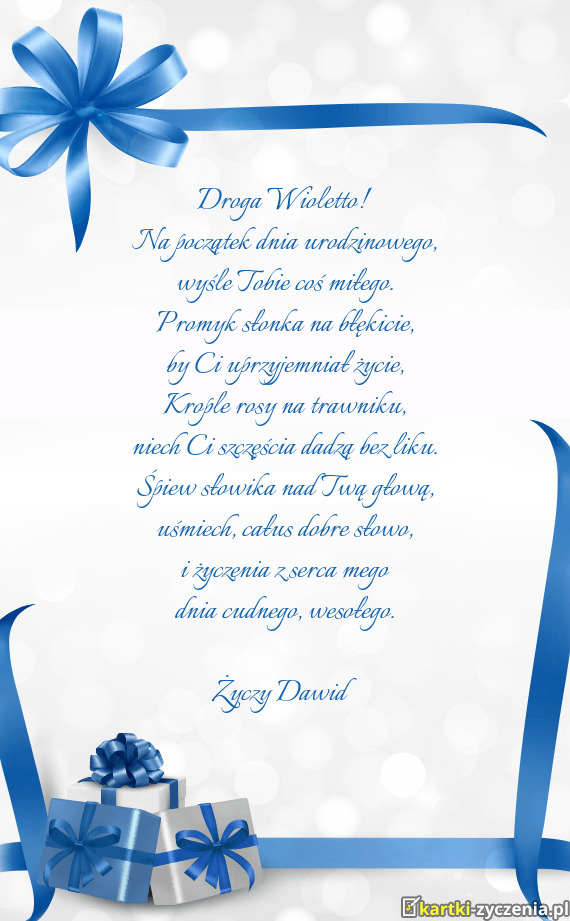 Droga Wioletto!
Na początek dnia urodzinowego,
wyśle Tobie coś miłego.
Promyk słonka na błękicie,
by Ci uprzyjemniał życie,
Krople rosy na trawniku,
niech Ci szczęścia dadzą bez liku.
Śpiew słowika nad Twą głową,
uśmiech, całus dobre słowo,
i życzenia z serca mego
dnia cudnego, wesołego.
Życzy Dawid
kartki-zyczenia.pl